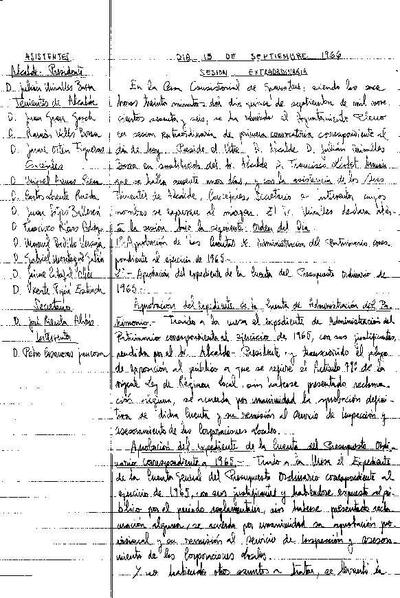 ASISTENTES
Alcalde-Presidente
D. Julián Miralles
Tenientes de Alcalde
D. Juan
D. Ramón Vallés
D. Jaime Ortín Figueras
Concejales
D. Miguel
D. Carlos
D. Juan
D. Francisco Rivas
D. Manuel
D. Gabriel
D. Jaime
D. Vicente
Secretario
D. José
Interventor
D. Pedro
DIA 15 DE SEPTIEMBRE 1966
SESION EXTRAORDINARIA
En la Casa Consistorial de siendo las
horas treinta minutos del día quince de septiembre de mil nove-
cientos sesenta y seis, se ha reunido el Ayuntamiento Pleno
en sesión extraordinaria de primera convocatoria correspondiente al
día de hoy. Preside el Iltre. Sr. Alcalde D. Julián Miralles
en sustitución del Sr. Alcalde D. Francisco
que se halla ausente unos días, y con la asistencia de los Sres.
Tenientes de Alcalde, Concejales, Secretario e Interventor cuyos
nombres se expresan al margen. El Sr. Miralles declara abier-
ta la sesión bajo la siguiente Orden del Día
1º Aprobación de las Cuentas de Administración del Patrimonio corres-
pondiente al ejercicio de 1965.-
2º- Aprobación del expediente de la Cuenta del Presupuesto Ordinario de
1965.-
Aprobación del Expediente de la Cuenta de Administración del Pa-
trimonio.- Traído a la mesa el expediente de Administración del
Patrimonio correspondiente al ejercicio de 1965, con sus justificantes,
rendida por el Sr. Alcalde-Presidente y transcurrido el plazo
de exposición al público a que se refiere el Artículo 790 de la
vigente Ley de Régimen Local, sin haberse presentado reclama-
ción alguna, se acuerda por unanimidad la aprobación defini-
tiva de dicha Cuenta y su remisión al Servicio de Inspección y
asesoramiento de las Corporaciones locales.
Aprobación del expediente de la Cuenta del Presupuesto Ordi-
nario correspondiente a 1965.- Traído a la Mesa el Expediente
de la Cuenta General del Presupuesto Ordinario correspondiente al
ejercicio de 1965, con sus justificantes y habiéndose expuesto al pú-
blico por el período reglamentario, sin haberse presentado recla-
mación alguna, se acuerda por unanimidad su aprobación pro-
visional y su remisión al servicio de Inspección y asesora-
miento de las Corporaciones locales.
Y no habiendo otros asuntos a tratar, se levanta la